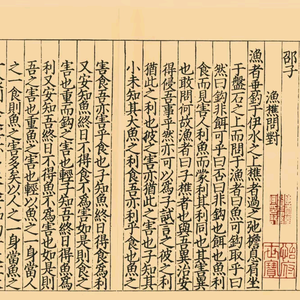 邵子
漁樵問對
漁者垂釣于伊水之上樵者過之弛檐息肩坐
于盤石之上而問于漁者曰魚可鈎取乎曰
然曰鈎非餌可乎曰否曰非鈎也餌也魚利
食而見害人利魚而蒙利其利同也其害異
也敢問何故漁者曰子樵者也與吾異治安
得侵吾事乎然亦可以為子試言之彼之利
猶此之利也彼之害亦猶此之害也子知其
小未知其大魚之利食吾亦利乎食也魚之
害食吾亦害乎食也子知魚終日得食為利
又安知魚終日不得食不為害如是則食之
害也重而鈎之害也輕子知吾終日得魚為
利又安知吾終日不得魚不為害也如是則
吾之害也重魚之害也輕以魚之一身當人
之一食則魚之害多矣以人之一身當魚之